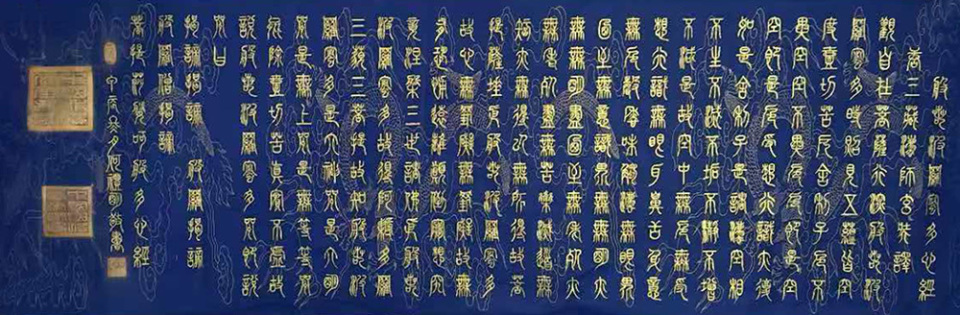 般若波羅蜜多心經
唐三藏法師玄奘譯
觀自在菩薩行深般若波
羅蜜多時照見五蘊皆空
度一切苦厄舍利子色不
異空空不異色色即是空
空即是色受想行識亦復
如是舍利子是諸法空相
不生不滅不垢不淨不增
不減是故空中無色無受
想行識無眼耳鼻舌身意
無色聲香味觸法無眼界
乃至無意識界無無明亦
無無明盡乃至無老死亦
無老死盡無苦集滅道無
智亦無得以無所得故菩
提薩埵依般若波羅蜜多
故心無罣礙無罣礙故無
有恐怖遠離顛倒夢想究
竟涅槃三世諸佛依般若
波羅蜜多故得阿耨多羅
三藐三菩提故知般若波
羅蜜多是大神咒是大明
咒是無上咒是無等等咒
能除一切苦真實不虛故
說般若波羅蜜多咒即說
咒曰
揭諦揭諦 般羅揭諦
般羅僧揭諦
菩提薩婆訶般若多心經
敬書